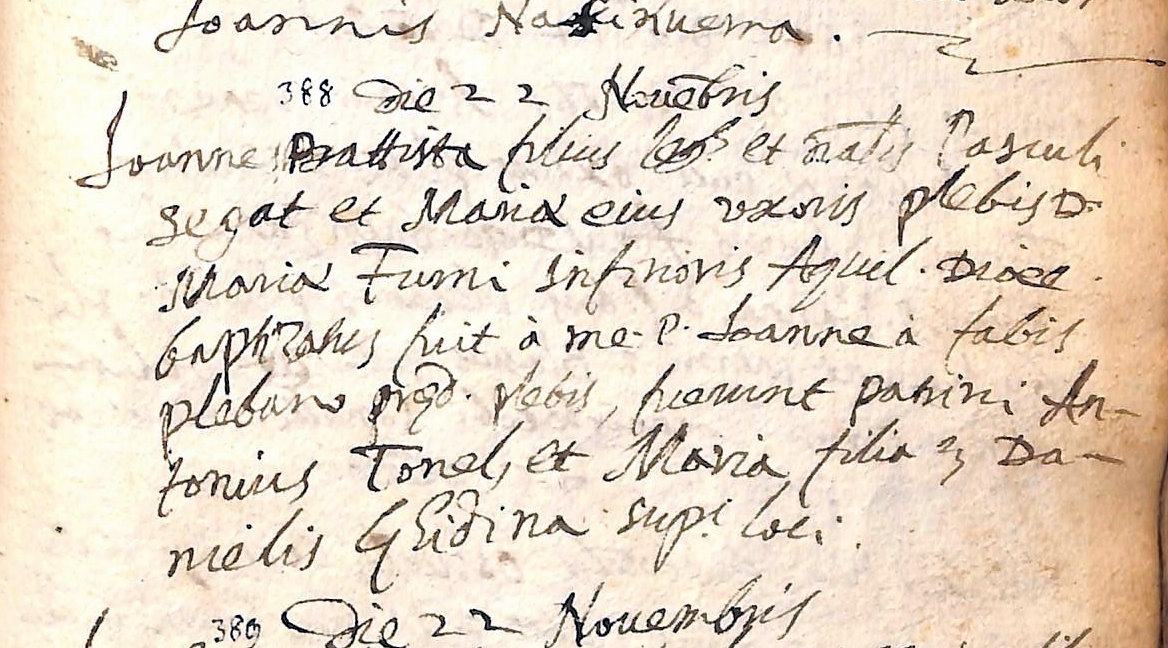 Joannis
388 Die 22 Novēbris
Joannes Battista filius leg.s et nātlis Pasculi
Segat et Mariæ eius uxoris plebis D.
Mariæ Furni inferioris Aquil. Dioec.
baptizatus fuit à me P. Joanne à fabis
plebano præd. plebis, fuerunt patrini An-
tonius Tonel, et Maria filia q Da-
nielis Ghidina sup.i loci.
389 Die 22 Novembris